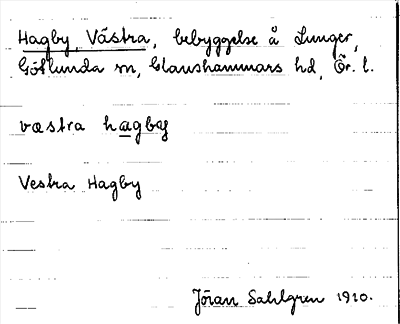 Hagby, Västra, bebyggelse å Lunger,
Götlunda sn, Glanshammars hd, Ör. l.
væstra hagbɥ
Vestra Hagby
Jöran Sahlgren 1910.